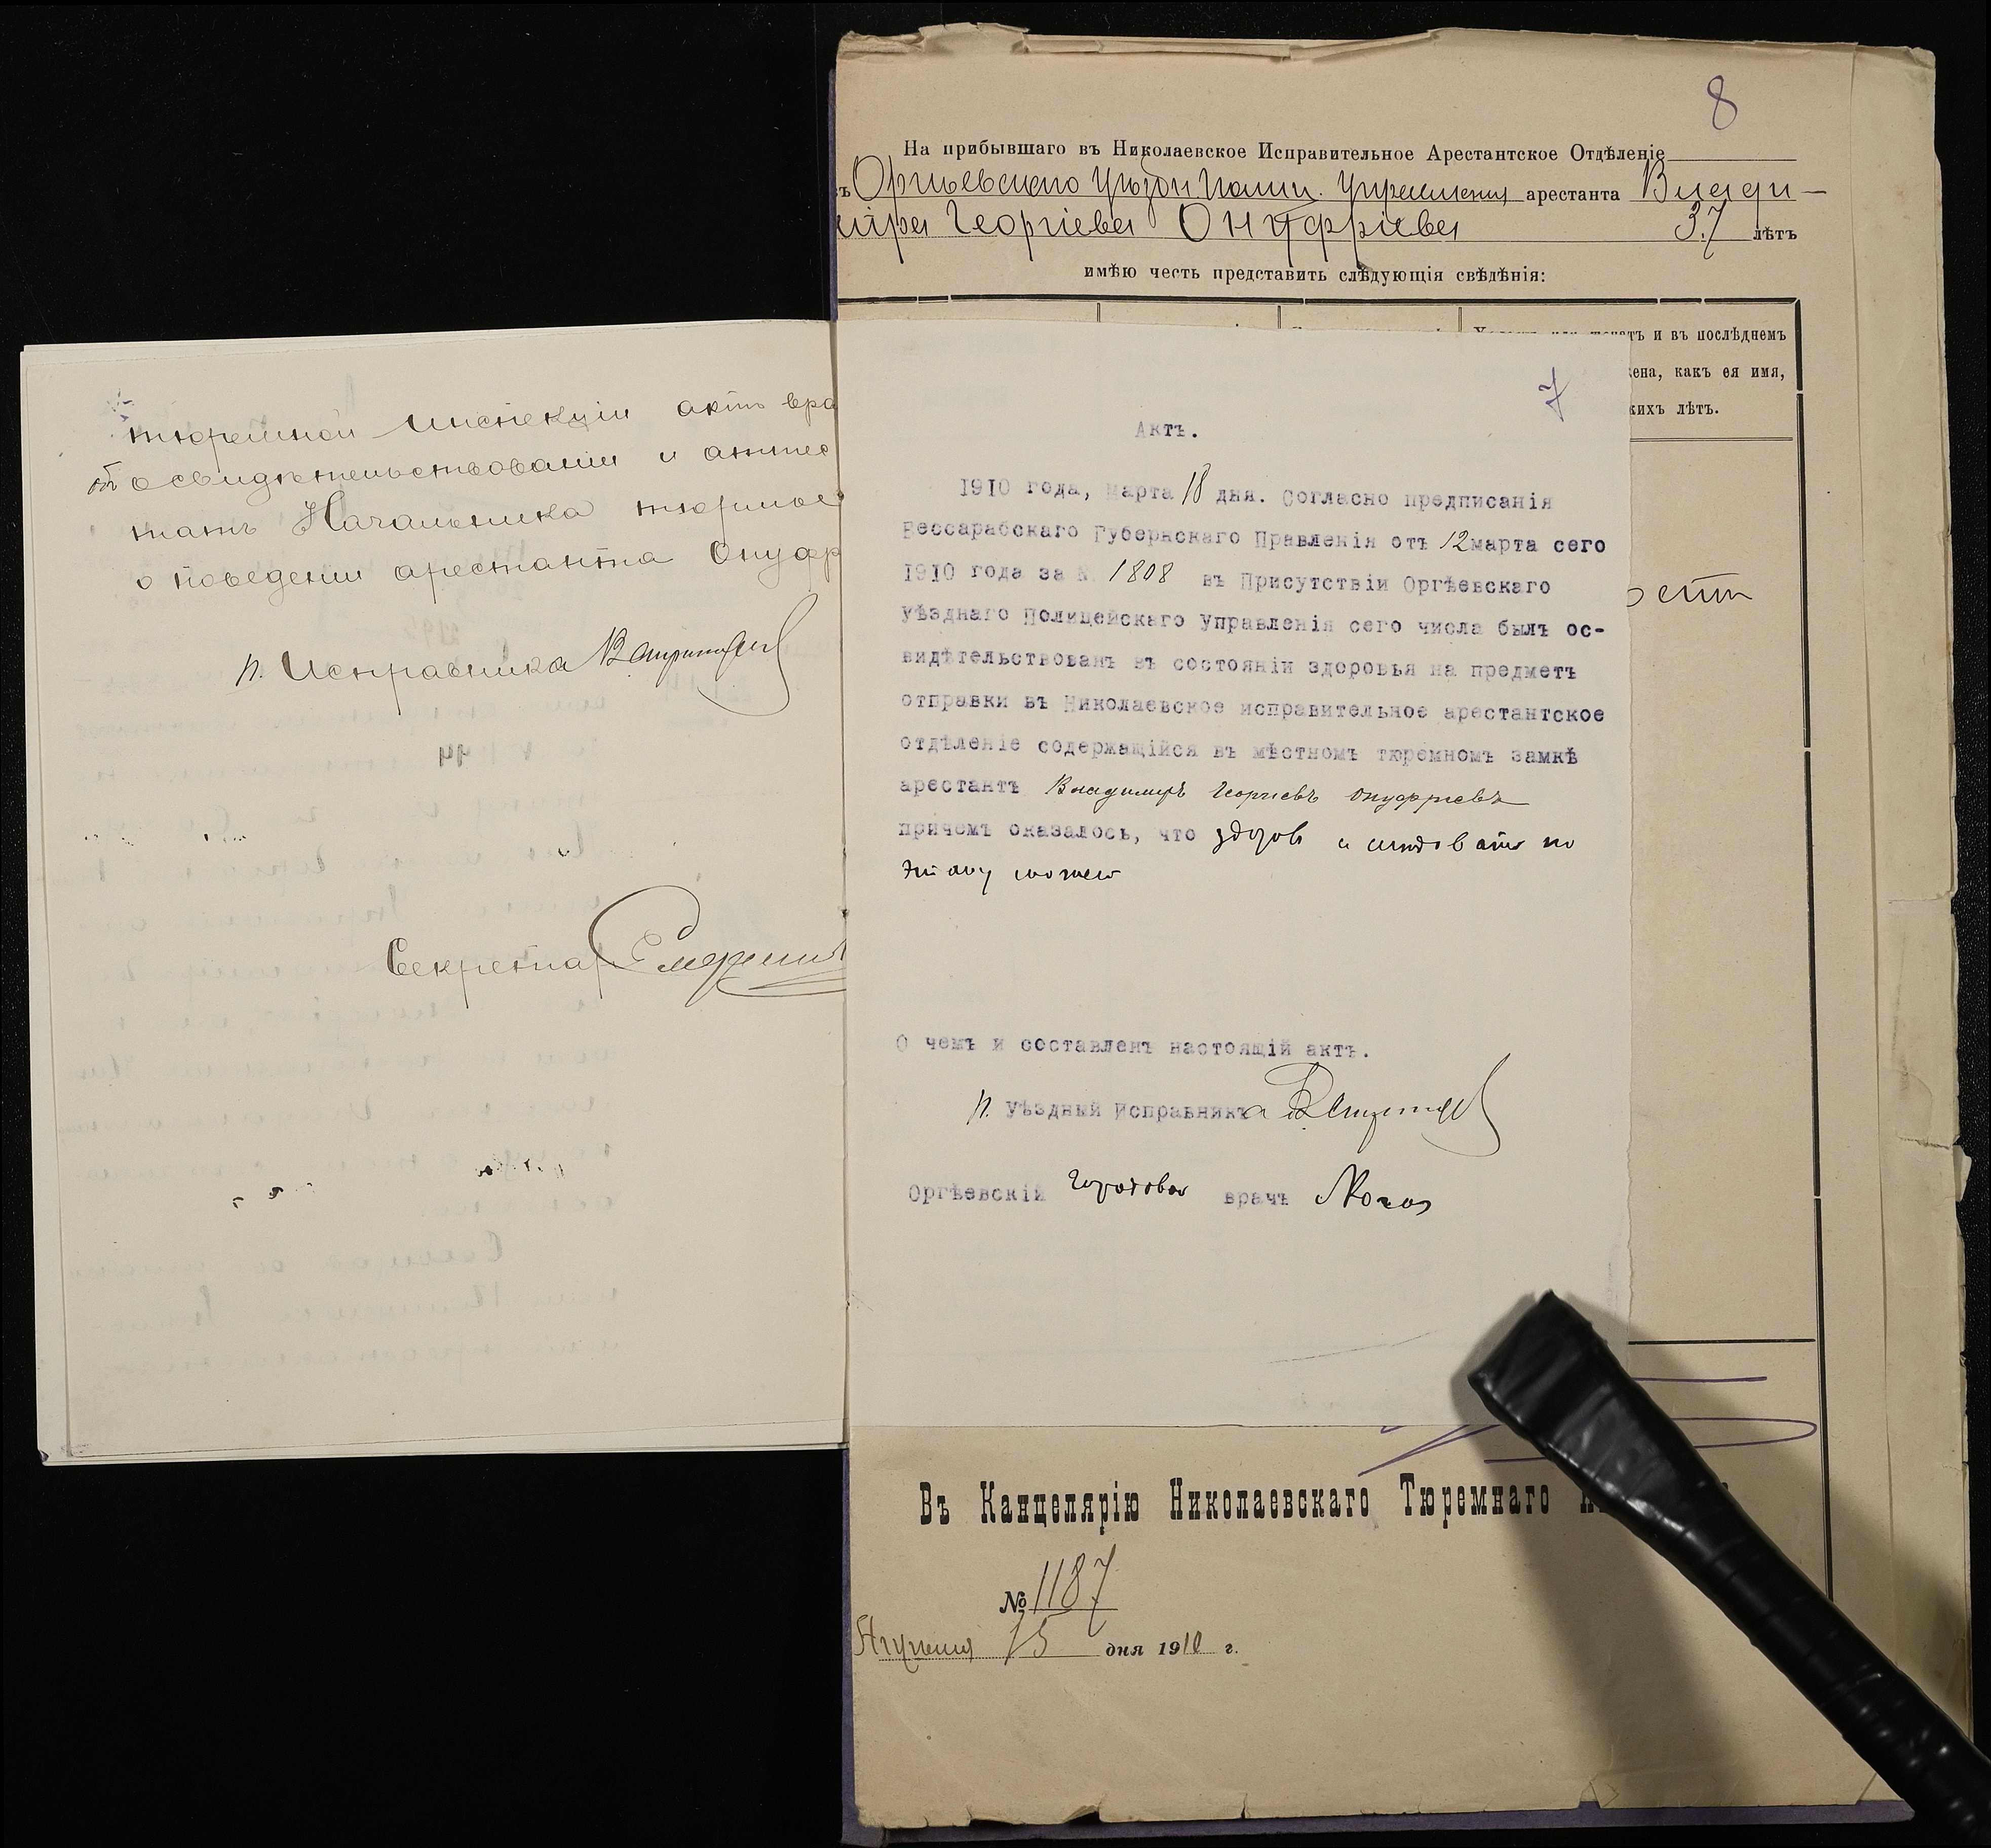 тюремной Инспекціи актъ вра
объ освидѣтельствованіи и аттес
татъ Начальника тюрьмы
о поведеніи арестанта Онуфр
п. Исправника
Секретарь
8
На прибывшаго въ Николаевское Исправительное Арестантское Отдѣленіе
въ Оргѣевскаго Уѣздн. Полиц. Управленія арестанта Влади-
міра Георгіева Онуфріева 37 лѣтъ
имѣю честь представить слѣдующія свѣдѣнія:
тъ и въ послѣднемъ
ена, какъ ея имя,
кихъ лѣтъ.
7
Актъ.
1910 года, марта 18 дня. Согласно предписанія
Бессарабскаго Губернскаго Правленія отъ 12 марта сего
1910 года за № 1808 въ Присутствіи Оргѣевскаго
уѣзднаго Полицейскаго Управленія сего числа былъ ос-
видѣтельствованъ въ состояніи здоровья на предметъ
отправки въ Николаевское исправительное арестантское
отдѣленіе содержащійся въ мѣстномъ тюремномъ замкѣ
арестантъ Владимиръ Георгіевъ Онуфріевъ
причемъ оказалось, что здоровъ и слѣдовать по
этапу можетъ
О чемъ и составленъ настоящій актъ.
п. Уѣздный Исправника
Оргѣевскій Городовой врачъ
Въ Канцелярію Николаевскаго Тюремнаго
№ 1187
15 дня 1910 г.